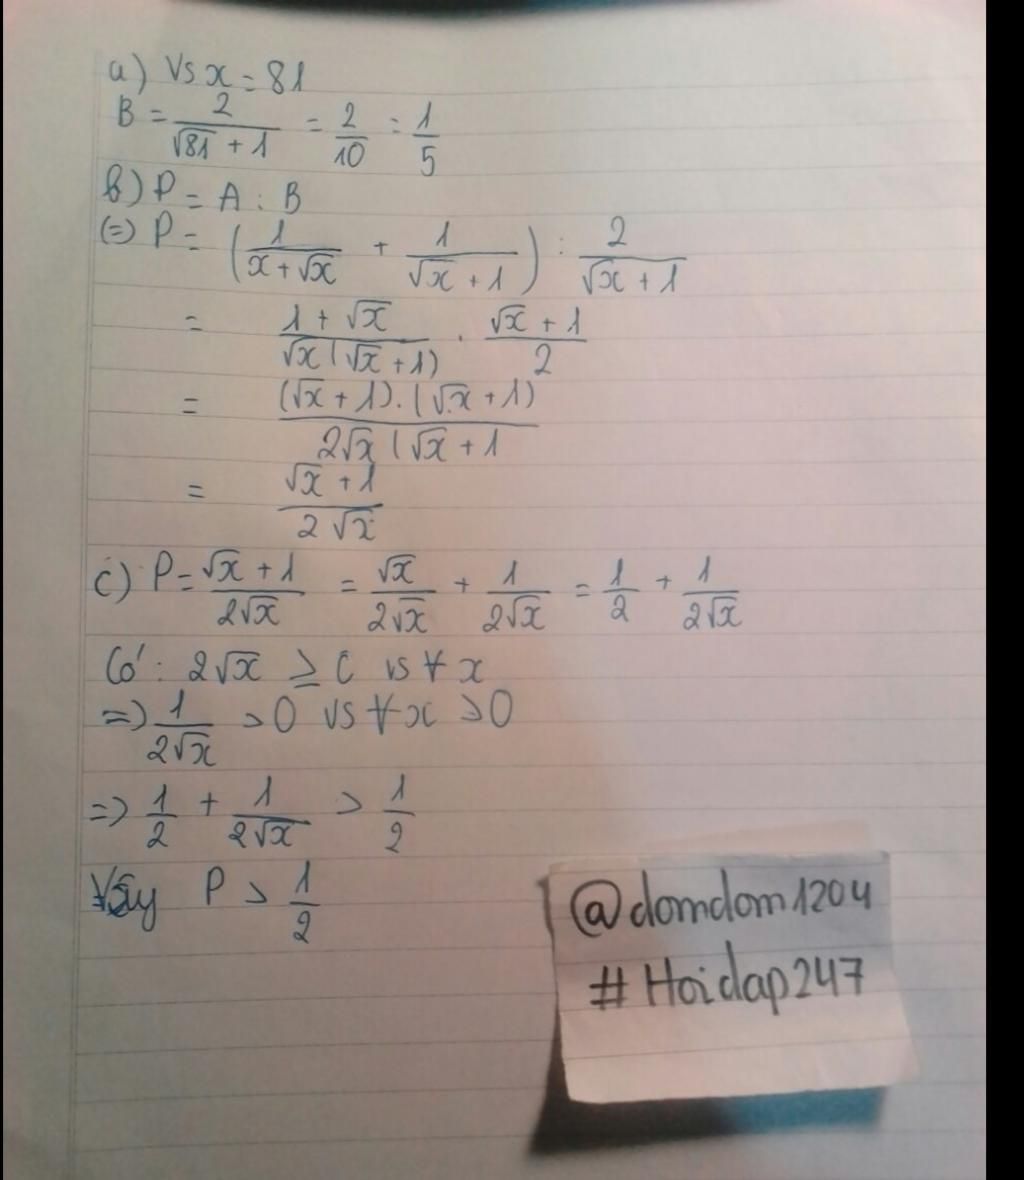 a) Vs x = 81
B = 2/(√81 + 1) = 2/10 = 1/5
b) P = A : B
(=) P = (1/(x + √x) + 1/(√x + 1)) : 2/(√x + 1)
= (1 + √x)/(√x(√x + 1)) . (√x + 1)/2
= (√x + 1).(√x + 1)/(2√x(√x + 1
= (√x + 1)/(2√x)
c) P = (√x + 1)/(2√x) = √x/(2√x) + 1/(2√x) = 1/2 + 1/(2√x)
Có : 2√x ≥ 0 vs ∀ x
=) 1/(2√x) > 0 vs ∀ x > 0
=> 1/2 + 1/(2√x) > 1/2
Vậy P > 1/2
@domdom1204
# Hoidap247